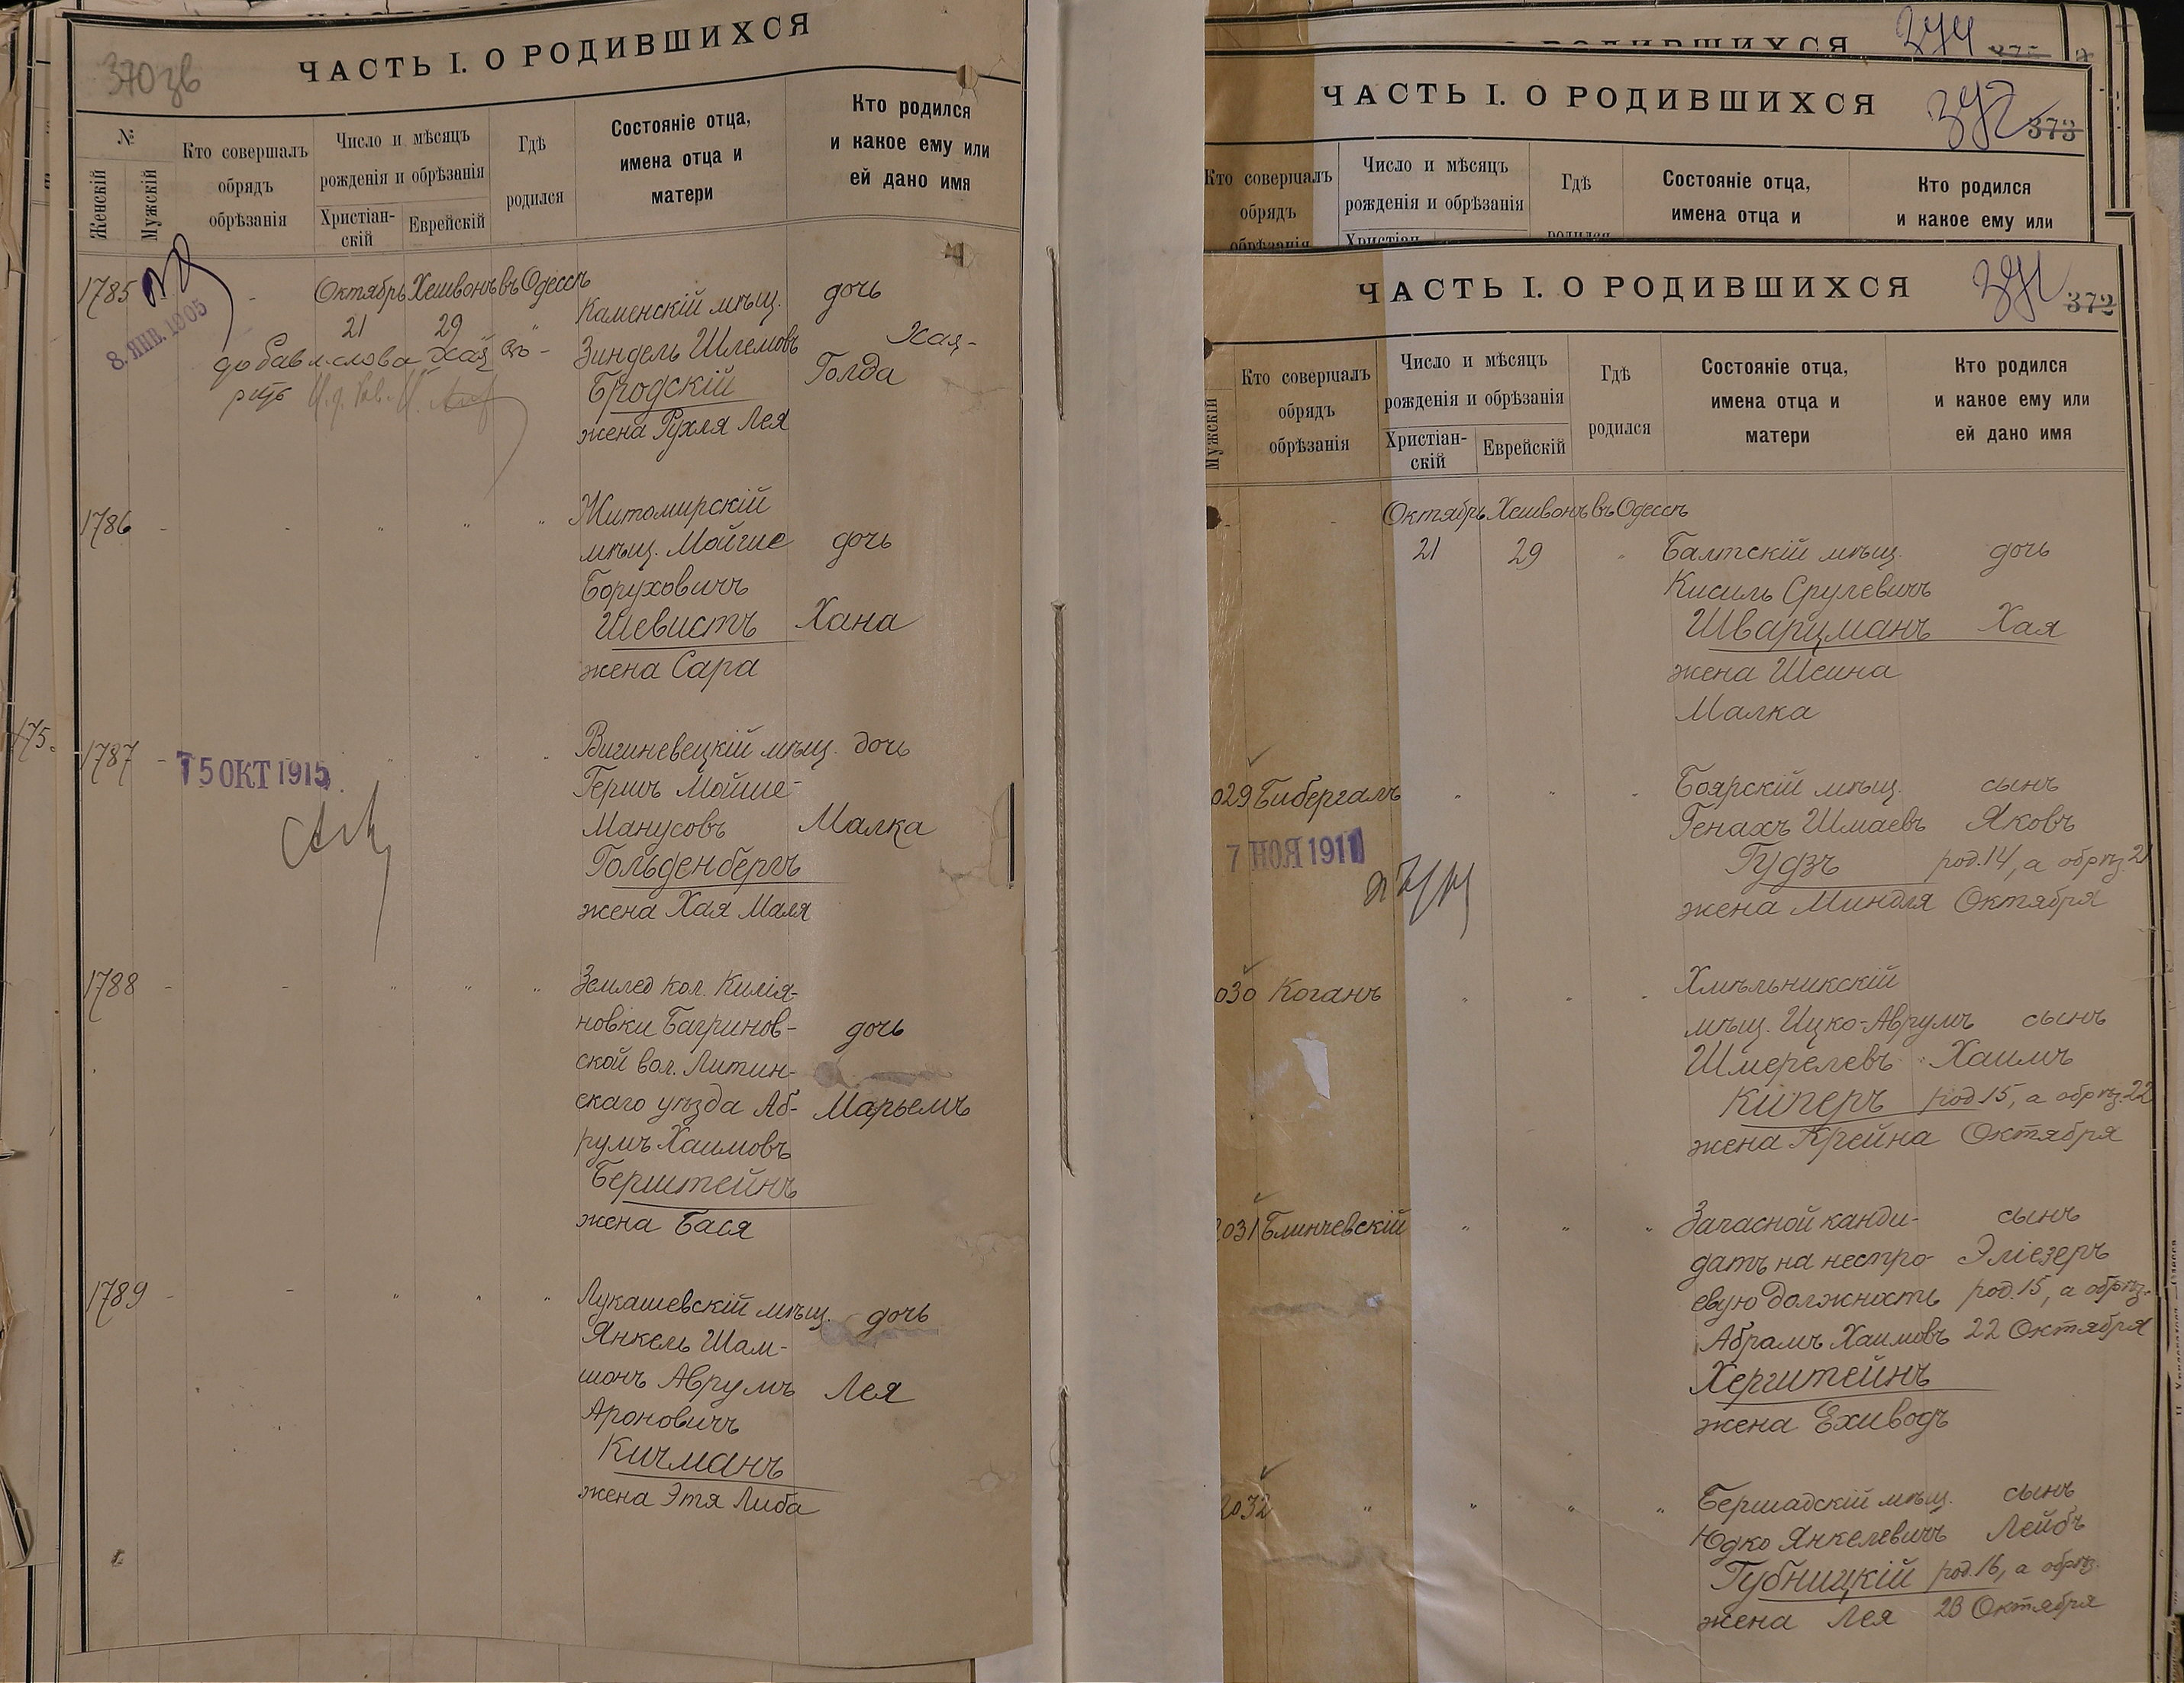 ЧАСТЬ I. О РОДИВШИХСЯ
370 зв
№
Женскій
Мужскій
Кто совершалъ
обрядъ
обрѣзанія
Число и мѣсяцъ
рожденія и обрѣзанія
Христіан-
скій
Еврейскій
Гдѣ
родился
Состояніе отца,
имена отца и
матери
Кто родился
и какое ему или
ей дано имя
1785
8. ЯНВ. 1905
Октябрь Хешвонъ въ Одессѣ
21 29
добавл. слова Хая вѣ-
рить
Каменскій мѣщ.
Зиндель Шлемовъ
Бродскій
жена Рухля Лея
дочь
Хая-
Голда
1786
Житомирскій
мѣщ. Мойше
Боруховичъ
Шевистъ
жена Сара
дочь
Хана
175.
1787
15 ОКТ 1915
Вишневецкій мѣщ.
Гершъ Мойше-
Манусовъ
Гольденбергъ
жена Хая Маля
дочь
Малка
1788
Землед кол. Килія-
новки Багринов-
ской вол. Литин-
скаго уѣзда Аб-
румъ Хаимовъ
Берштейнъ
жена Бася
дочь
Марьемъ
1789
Лукашевскій мѣщ.
Янкель Шам-
шонъ Аврумъ
Ароновичъ
Кичманъ
жена Этя Либа
дочь
Лея
РОДИВШИХСЯ
374
ЧАСТЬ I. О РОДИВШИХСЯ
372
373
Кто совершалъ
обрядъ
обрѣзанія
Число и мѣсяцъ
рожденія и обрѣзанія
Христіан-
Гдѣ
родился
Состояніе отца,
имена отца и
Кто родился
и какое ему или
ЧАСТЬ I. О РОДИВШИХСЯ
371
372
Мужскій
Кто совершалъ
обрядъ
обрѣзанія
Число и мѣсяцъ
рожденія и обрѣзанія
Христіан-
скій
Еврейскій
Гдѣ
родился
Состояніе отца,
имена отца и
матери
Кто родился
и какое ему или
ей дано имя
Октябрь Хешвонъ въ Одессѣ
21 29
Балтскій мѣщ.
Кисиль Срулевичъ
Шварцманъ
жена Шеина
Малка
дочь
Хая
029 Бибергалъ
7 НОЯ 1911
Боярскій мѣщ.
Генахъ Шмаевъ
Гудзъ
жена Миндля
сынъ
Яковъ
род. 14, а обрѣз. 21
Октября
030 Коганъ
Хмѣльникскій
мѣщ. Ицко-Аврумъ
Шмерелевъ
Киперъ
жена Крейна
сынъ
Хаимъ
род. 15, а обрѣз. 22
Октября
2031 Блинчевскій
Запасной канди-
датъ на нестро-
евую должность
Абрамъ Хаимовъ
Херштейнъ
жена Ехиводъ
сынъ
Эліезеръ
род. 15, а обрѣз.
22 Октября
2032
Бершадскій мѣщ.
Юдко Янкелевичъ
Губницкій
жена Лея
сынъ
Лейбъ
род. 16, а обрѣз.
23 Октября